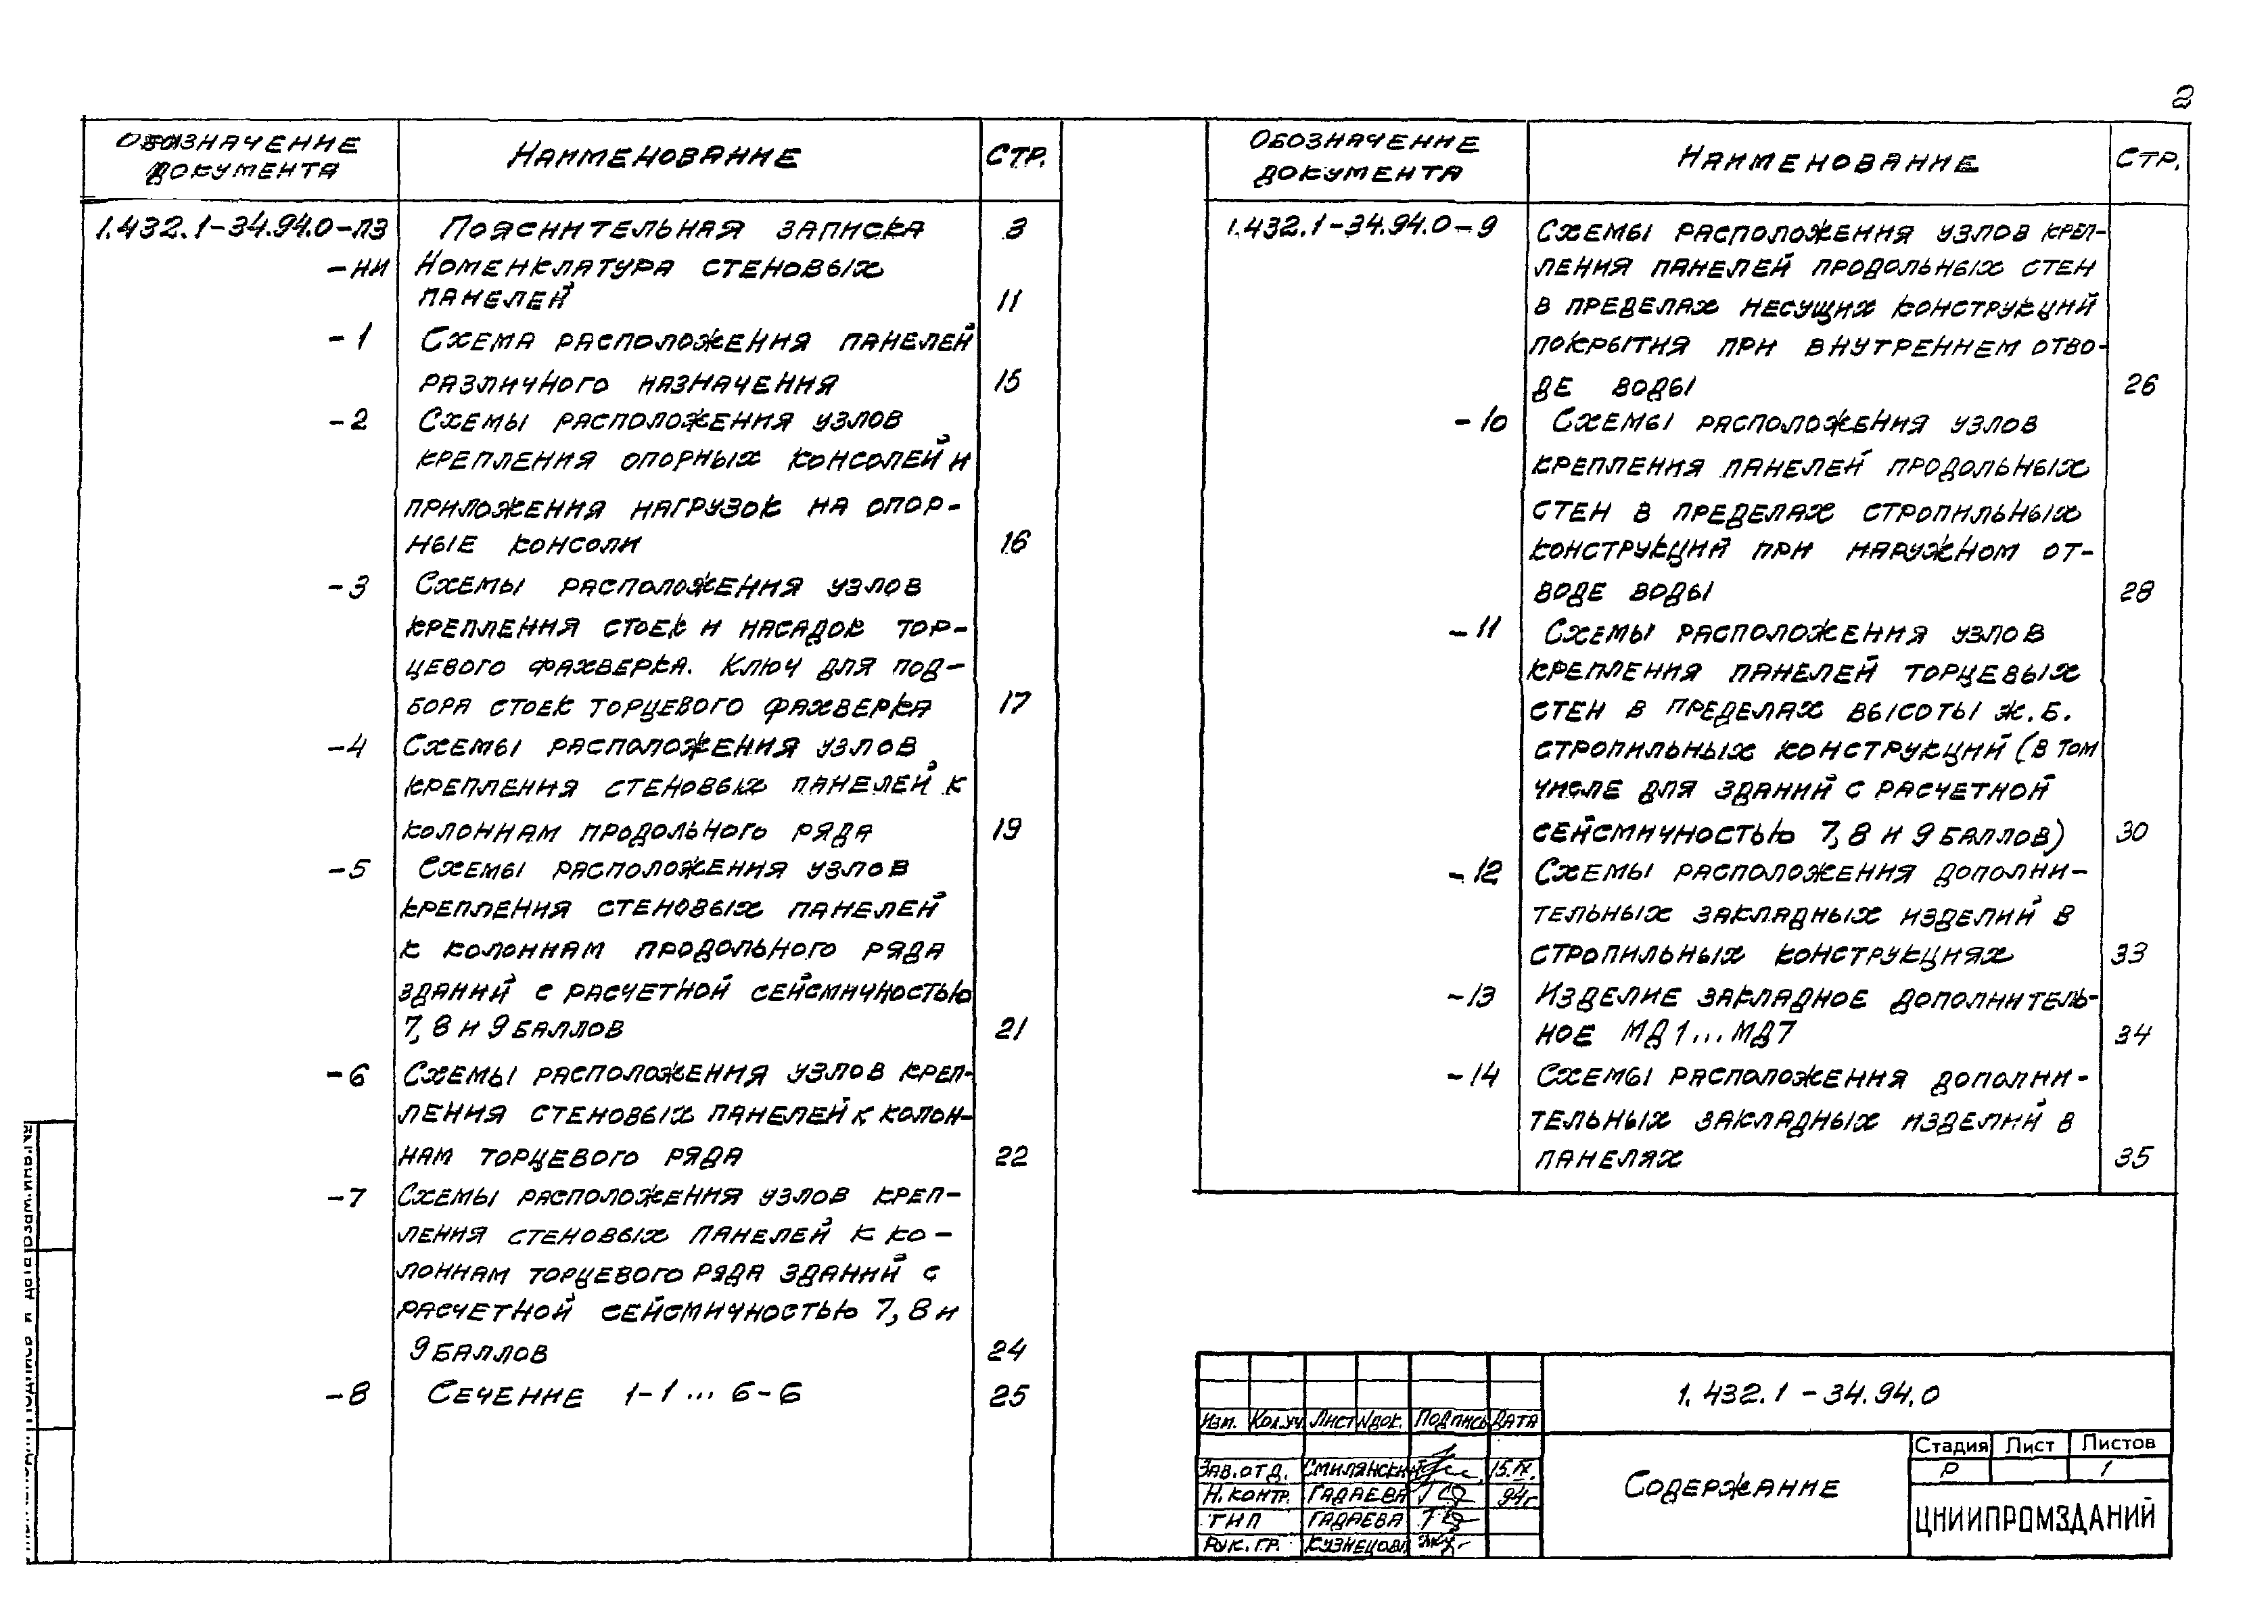 2
ОБОЗНАЧЕНИЕ ДОКУМЕНТА
НАИМЕНОВАНИЕ
СТР.
1.432.1-34.94.0-ПЗ ПОЯСНИТЕЛЬНАЯ ЗАПИСКА 3
-НИ НОМЕНКЛАТУРА СТЕНОВЫХ
ПАНЕЛЕЙ 11
-1 СХЕМА РАСПОЛОЖЕНИЯ ПАНЕЛЕЙ
РАЗЛИЧНОГО НАЗНАЧЕНИЯ 15
-2 СХЕМЫ РАСПОЛОЖЕНИЯ УЗЛОВ
КРЕПЛЕНИЯ ОПОРНЫХ КОНСОЛЕЙ И
ПРИЛОЖЕНИЯ НАГРУЗОК НА ОПОР-
НЫЕ КОНСОЛИ 16
-3 СХЕМЫ РАСПОЛОЖЕНИЯ УЗЛОВ
КРЕПЛЕНИЯ СТОЕК И НАСАДОК ТОР-
ЦЕВОГО ФАХВЕРКА. КЛЮЧ ДЛЯ ПОД-
БОРА СТОЕК ТОРЦЕВОГО ФАХВЕРКА 17
-4 СХЕМЫ РАСПОЛОЖЕНИЯ УЗЛОВ
КРЕПЛЕНИЯ СТЕНОВЫХ ПАНЕЛЕЙ К
КОЛОННАМ ПРОДОЛЬНОГО РЯДА 19
-5 СХЕМЫ РАСПОЛОЖЕНИЯ УЗЛОВ
КРЕПЛЕНИЯ СТЕНОВЫХ ПАНЕЛЕЙ
К КОЛОННАМ ПРОДОЛЬНОГО РЯДА
ЗДАНИЙ С РАСЧЕТНОЙ СЕЙСМИЧНОСТЬЮ
7, 8 И 9 БАЛЛОВ 21
-6 СХЕМЫ РАСПОЛОЖЕНИЯ УЗЛОВ КРЕП-
ЛЕНИЯ СТЕНОВЫХ ПАНЕЛЕЙ К КОЛОН-
НАМ ТОРЦЕВОГО РЯДА 22
-7 СХЕМЫ РАСПОЛОЖЕНИЯ УЗЛОВ КРЕП-
ЛЕНИЯ СТЕНОВЫХ ПАНЕЛЕЙ К КО-
ЛОННАМ ТОРЦЕВОГО РЯДА ЗДАНИЙ С
РАСЧЕТНОЙ СЕЙСМИЧНОСТЬЮ 7, 8 И
9 БАЛЛОВ 24
-8 СЕЧЕНИЕ 1-1 ... 6-6 25
ОБОЗНАЧЕНИЕ ДОКУМЕНТА
НАИМЕНОВАНИЕ
СТР.
1.432.1-34.94.0-9 СХЕМЫ РАСПОЛОЖЕНИЯ УЗЛОВ КРЕП-
ЛЕНИЯ ПАНЕЛЕЙ ПРОДОЛЬНЫХ СТЕН
В ПРЕДЕЛАХ НЕСУЩИХ КОНСТРУКЦИЙ
ПОКРЫТИЯ ПРИ ВНУТРЕННЕМ ОТВО-
ДЕ ВОДЫ 26
-10 СХЕМЫ РАСПОЛОЖЕНИЯ УЗЛОВ
КРЕПЛЕНИЯ ПАНЕЛЕЙ ПРОДОЛЬНЫХ
СТЕН В ПРЕДЕЛАХ СТРОПИЛЬНЫХ
КОНСТРУКЦИЙ ПРИ НАРУЖНОМ ОТ-
ВОДЕ ВОДЫ 28
-11 СХЕМЫ РАСПОЛОЖЕНИЯ УЗЛОВ
КРЕПЛЕНИЯ ПАНЕЛЕЙ ТОРЦЕВЫХ
СТЕН В ПРЕДЕЛАХ ВЫСОТЫ Ж.Б.
СТРОПИЛЬНЫХ КОНСТРУКЦИЙ (В ТОМ
ЧИСЛЕ ДЛЯ ЗДАНИЙ С РАСЧЕТНОЙ
СЕЙСМИЧНОСТЬЮ 7, 8 И 9 БАЛЛОВ) 30
-12 СХЕМЫ РАСПОЛОЖЕНИЯ ДОПОЛНИ-
ТЕЛЬНЫХ ЗАКЛАДНЫХ ИЗДЕЛИЙ В
СТРОПИЛЬНЫХ КОНСТРУКЦИЯХ 33
-13 ИЗДЕЛИЕ ЗАКЛАДНОЕ ДОПОЛНИТЕЛЬ-
НОЕ МД1...МД7 34
-14 СХЕМЫ РАСПОЛОЖЕНИЯ ДОПОЛНИ-
ТЕЛЬНЫХ ЗАКЛАДНЫХ ИЗДЕЛИЙ В
ПАНЕЛЯХ 35
1.432.1-34.94.0
ИЗМ. КОЛ.УЧ ЛИСТ №ДОК. ПОДПИСЬ ДАТА
ЗАВ.ОТД. СМИЛЯНСКИЙ 15.IX.
Н.КОНТР. ГАДАЕВА 94г
ГИП ГАДАЕВА
РУК.ГР. КУЗНЕЦОВА
СОДЕРЖАНИЕ
Стадия Лист Листов
Р 1
ЦНИИПРОМЗДАНИЙ